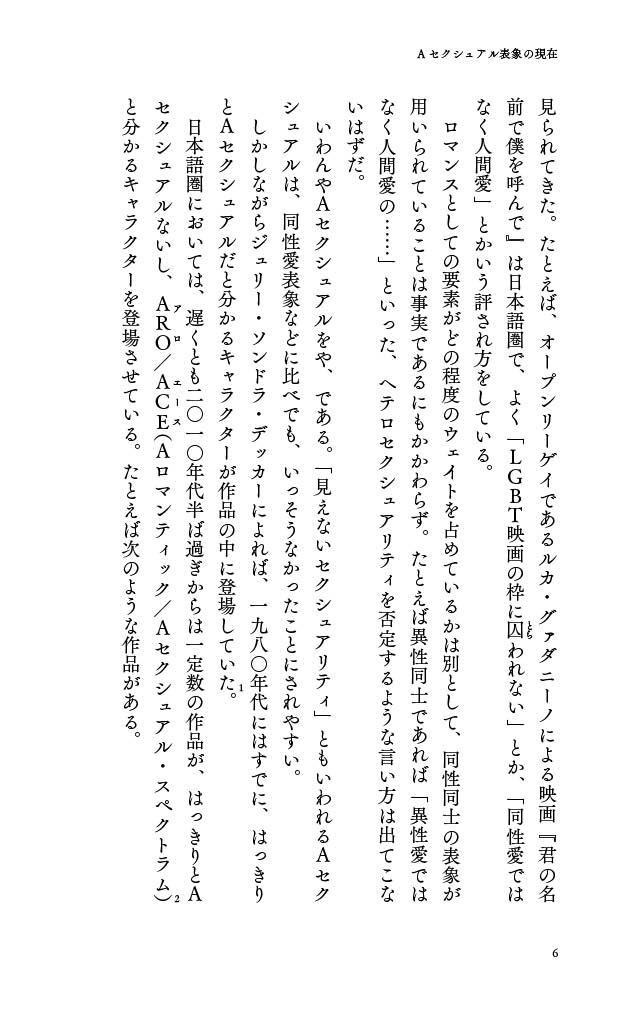 Aセクシュアル表象の現在
見られてきた。たとえば、オープンリーゲイであるルカ・グァダニーノによる映画『君の名
前で僕を呼んで』は日本語圏で、よく「LGBT映画の枠に囚われない」とか、「同性愛では
なく人間愛」とかいう評され方をしている。
ロマンスとしての要素がどの程度のウェイトを占めているかは別として、同性同士の表象が
用いられていることは事実であるにもかかわらず。たとえば異性同士であれば「異性愛では
なく人間愛の……」といった、ヘテロセクシュアリティを否定するような言い方は出てこな
いはずだ。
いわんやAセクシュアルをや、である。「見えないセクシュアリティ」ともいわれるAセク
シュアルは、同性愛表象などに比べでも、いっそうなかったことにされやすい。
しかしながらジュリー・ソンドラ・デッカーによれば、一九八〇年代にはすでに、はっきり
とAセクシュアルだと分かるキャラクターが作品の中に登場していた。1
日本語圏においては、遅くとも二〇一〇年代半ば過ぎからは一定数の作品が、はっきりとA
セクシュアルないし、ARO/ACE(Aロマンティック/Aセクシュアル・スペクトラム)2
と分かるキャラクターを登場させている。たとえば次のような作品がある。
6